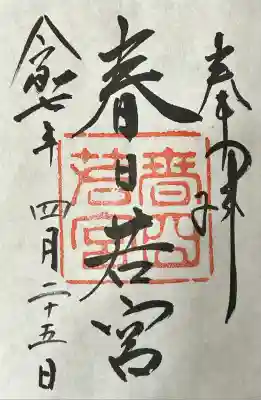 奉拝
春日若宮
春日若宮
令和七年 四月二十五日